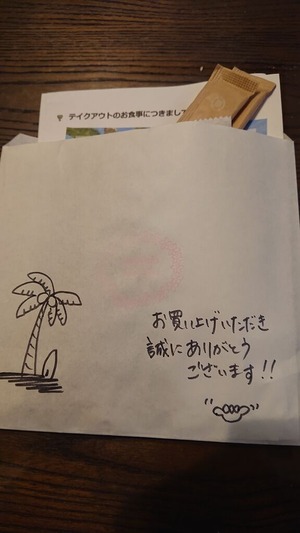 テイクアウトのお食事につきまして
お買い上げいただき
誠にありがとう
ございます!!